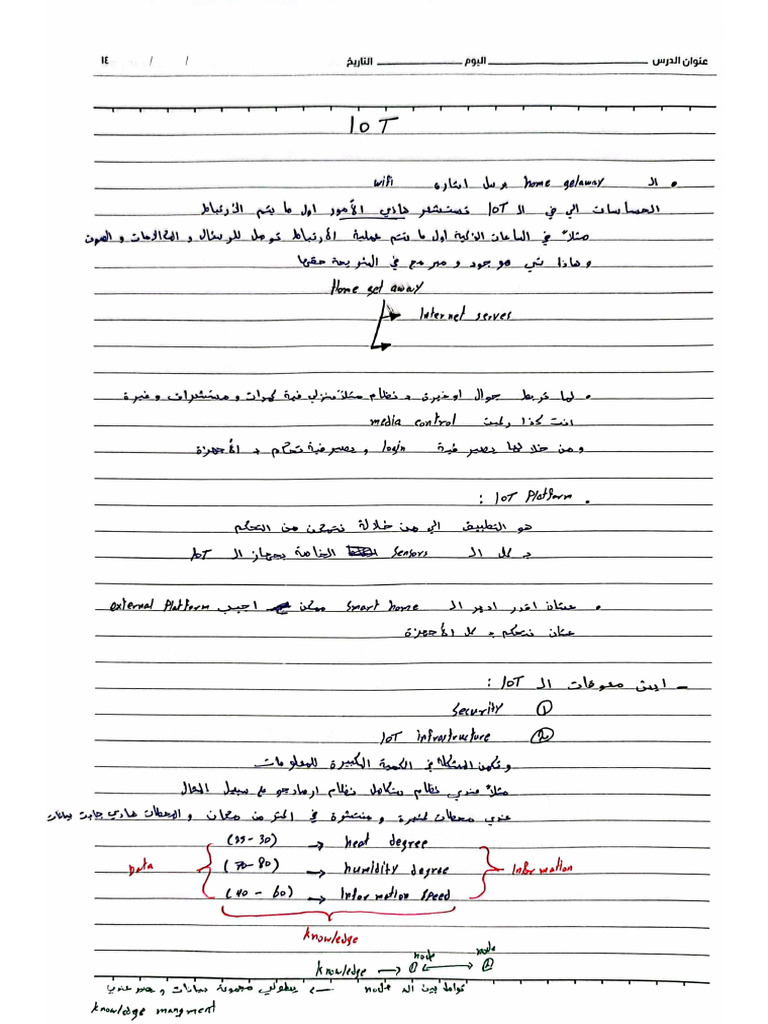 عنوان الدرس اليوم التاريخ / / ١٤
IoT
• الـ home getaway يرسل اشارة wifi
الحساسات الي في الـ IoT تستشعر هاذي الأمور اول ما يتم الأرتباط
مثلاً في الساعات الذكية اول ما يتم عملية الأرتباط توصل للرسائل و المكالمات و الصوت
و هاذا شي موجود و مبرمج في الشريحة حقها
Home get away
Internet serves
• لما تربط جوال او غيرة بـ نظام مثلاً منزلي فية كمرات و مستشعرات و غيرة
انت كذا media control
و من خلالها يصير فية login و يصير فية تحكم بـ الأجهزة
• IoT Platform :
هو التطبيق الي من خلالة نتمكن من التحكم
بـ كل الـ Sensors الخاصة بجهاز الـ IoT
• عشان اقدر ادير الـ Smart home ممكن اجيب external Platform
عشان نتحكم بـ كل الأجهزة
- ايش معوقات الـ IoT :
① Security
② IoT infrastructure
و تكمن المشكلة في الكمية الكبيرة للمعلومات
مثلاً عندي نظام متكامل نظام ارصاد جو على سبيل المثال
عندي محطات كثيرة و منتشرة في اكثر من مكان و المحطات هاذي جابت بيانات
(35-30) → heat degree
Data (70-80) → humidity degree Information
(40-60) → Information speed
knowledge
node node
knowledge → ① ↔ ②
تواصل بين الـ node → يعطوني مجموعة بيانات و يصير عندي
knowledge mangment